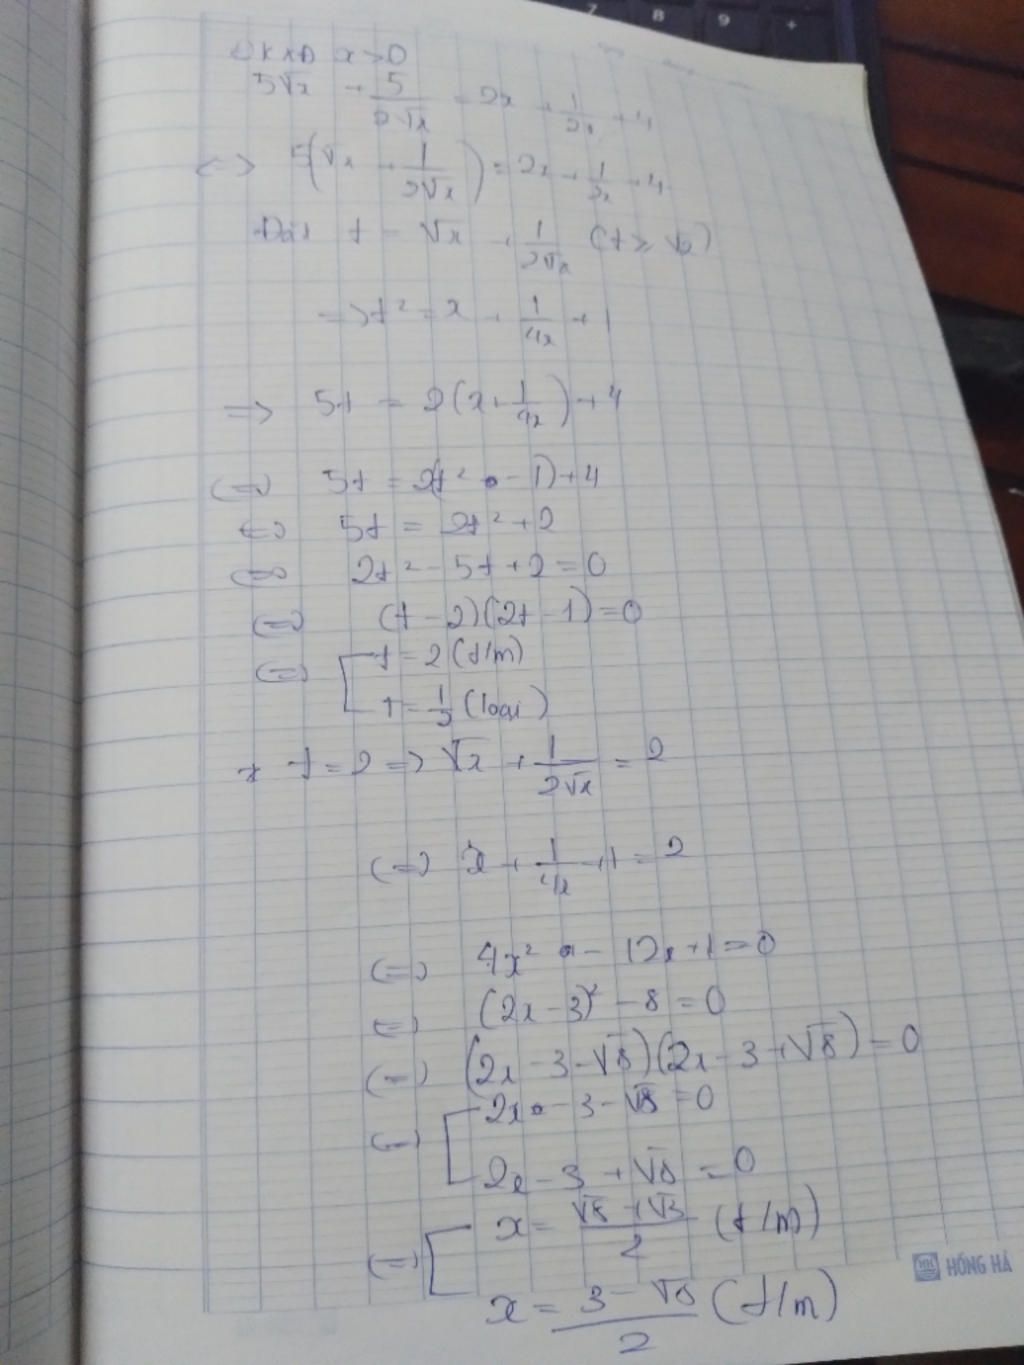 7 8 9 +
ĐKXĐ x > 0
5√x + 5/(2√x) = 2x + 1/(2x) + 4
<=> 5(√x + 1/(2√x)) = 2x + 1/(2x) + 4
Đặt t = √x + 1/(2√x) (t ≥ √2)
=> t² = x + 1/(4x) + 1
=> 5t = 2(x + 1/(4x)) + 4
<=> 5t = 2(t² - 1) + 4
<=> 5t = 2t² + 2
<=> 2t² - 5t + 2 = 0
<=> (t - 2)(2t - 1) = 0
<=> [ t = 2 (t/m)
t = 1/2 (loại)
+ t = 2 => √x + 1/(2√x) = 2
<=> x + 1/(4x) + 1 = 2
<=> 4x² - 12x + 1 = 0
<=> (2x - 3)² - 8 = 0
<=> (2x - 3 - √8)(2x - 3 + √8) = 0
<=> [ 2x - 3 - √8 = 0
2x - 3 + √8 = 0
<=> [ x = (√8 + √3)/2 (t/m)
x = (3 - √8)/2 (t/m)
HỒNG HÀ